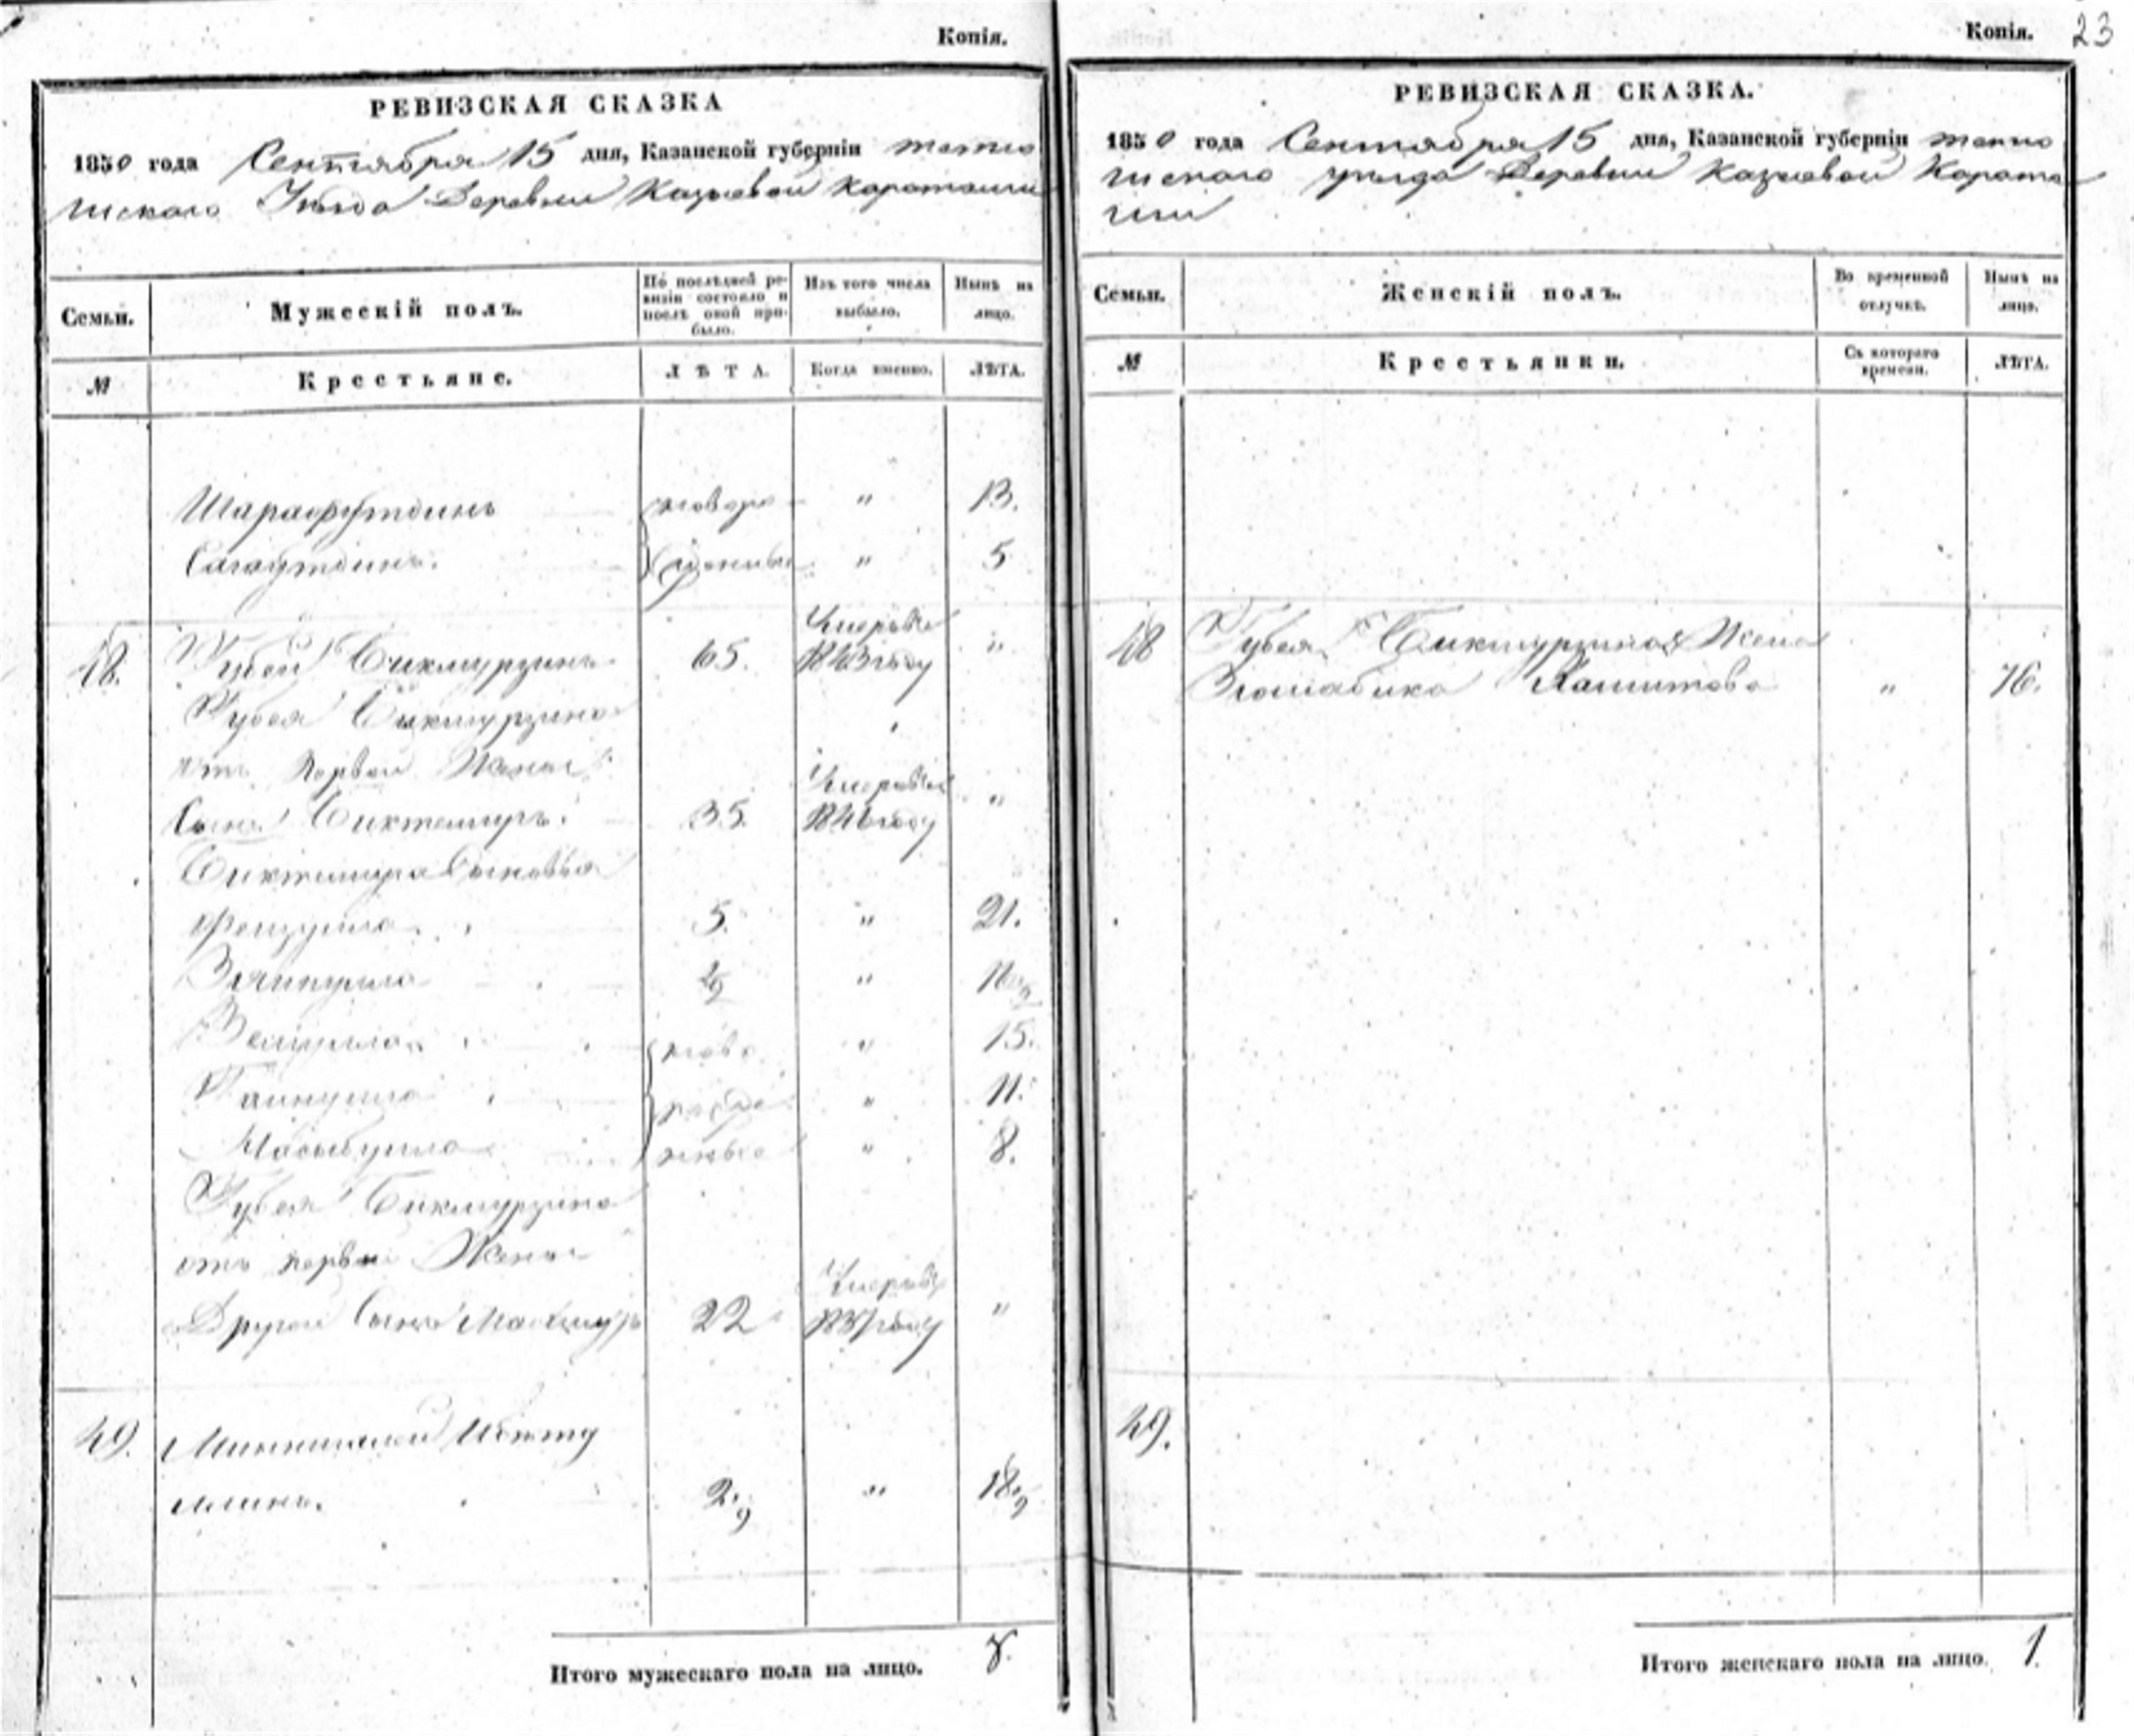 Копія.
РЕВИЗСКАЯ СКАЗКА
1850 года Сентября 15 дня, Казанской губерніи тетю
шскаго Уѣзда Деревни Казыевой
Семьи.
Мужескій полъ.
По послѣдней ре-
визіи состояло и
послѣ оной при-
было.
Изъ того числа
выбыло.
Нынѣ на
лицо.
№
Крестьяне.
ЛѢТА.
Когда именно.
ЛѢТА.
Шарафутдинъ новоро " 13.
Сагаутдинъ. жденные " 5
48. Губей Бикмурзинъ 65. Умеръ въ 1843 году "
Губея Бикмурзина
отъ первой Жены
Сынъ Биктемиръ. 35. Умеръ въ 1846 году "
Биктимира Сыновья
Фейзулла 5. " 21.
"
Велиулла ново " 15.
Гайнулла рожде " 11.
Насыбулла нные " 8.
Губея Бикмурзина
отъ первой Жены
Другой Сынъ 22 Умеръ въ 1837 году "
49.
2.9 " 18.9
Итого мужескаго пола на лицо. 8.
Копія. 23
РЕВИЗСКАЯ СКАЗКА.
1850 года Сентября 15 дня, Казанской губерніи тетю
шскаго уѣзда Деревни Казыевой
Семьи.
Женскій полъ.
Во временной
отлучкѣ.
Нынѣ на
лицо.
№
Крестьянки.
Съ котораго
времени.
ЛѢТА.
48 Губея Бикмурзина Жена
" 76.
49.
Итого женскаго пола на лицо. 1.